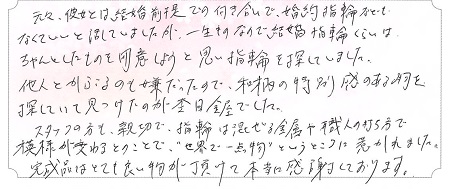 元々、彼女とは結婚前提での付き合いで、婚約指輪なども
なくていいと話していましたが、一生ものなので結婚指輪くらいは
ちゃんとしたものを用意しようと思い指輪を探していました。
他人とかぶるのも嫌だったので、和柄の特別感のある物を
探していて見つけたのが杢目金屋でした。
スタッフの方も、親切で、指輪は混ぜる金属や職人の打ち方で
模様が変わるとのことで、"世界で一点物"というところに惹かれました。
完成品はとても良い物が頂けて本当に感謝しております。